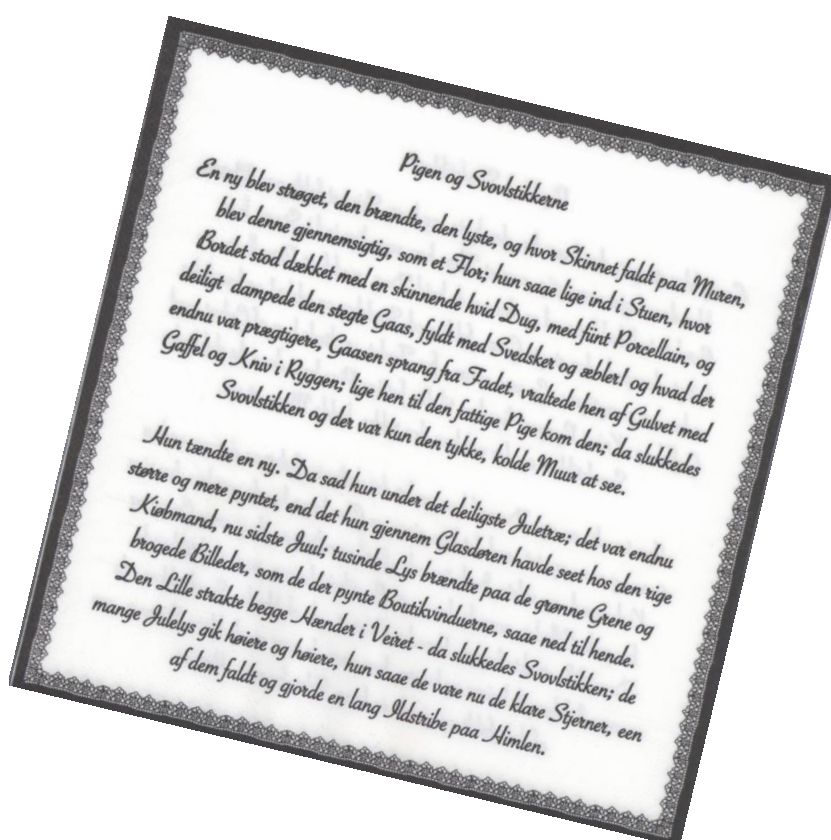 Pigen og Svovlstikkerne
En ny blev strøget, den brændte, den lyste, og hvor Skinnet faldt paa Muren,
blev denne gjennemsigtig, som et Flor; hun saae lige ind i Stuen, hvor
Bordet stod dækket med en skinnende hvid Dug, med fiint Porcellain, og
deiligt dampede den stegte Gaas, fyldt med Svedsker og æbler! og hvad der
endnu var prægtigere, Gaasen sprang fra Fadet, vraltede hen af Gulvet med
Gaffel og Kniv i Ryggen; lige hen til den fattige Pige kom den; da slukkedes
Svovlstikken og der var kun den tykke, kolde Muur at see.
Hun tændte en ny. Da sad hun under det deiligste Juletræ; det var endnu
større og mere pyntet, end det hun gjennem Glasdøren havde seet hos den rige
Kiøbmand, nu sidste Juul; tusinde Lys brændte paa de grønne Grene og
brogede Billeder, som de der pynte Boutikvinduerne, saae ned til hende.
Den Lille strakte begge Hænder i Veiret - da slukkedes Svovlstikken; de
mange Julelys gik høiere og høiere, hun saae de vare nu de klare Stjerner, een
af dem faldt og gjorde en lang Ildstribe paa Himlen.